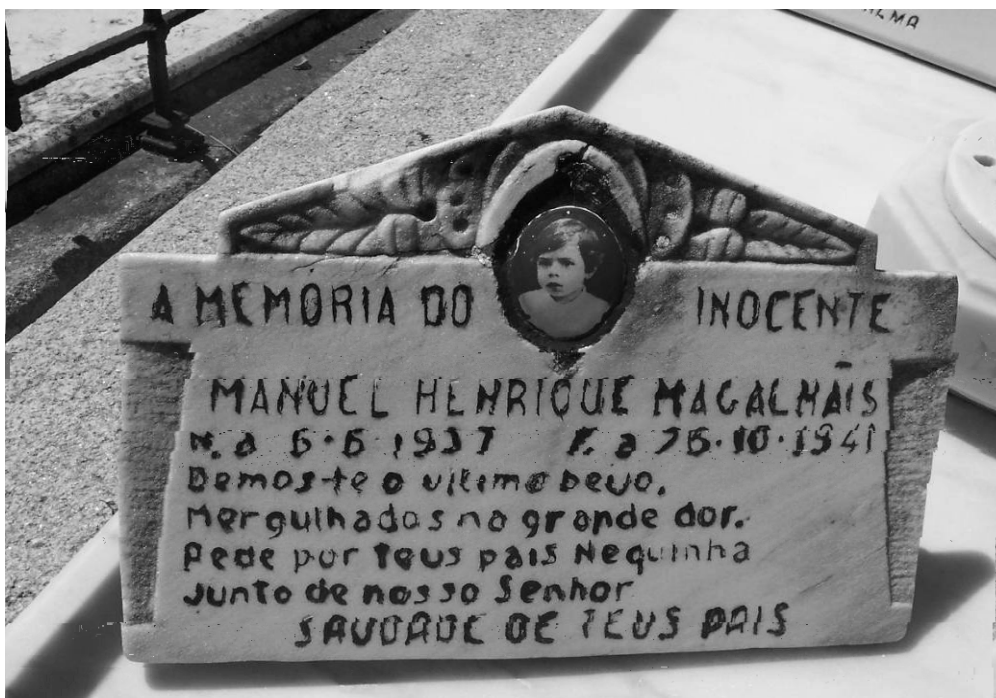 ALMA
A MEMÓRIA DO INOCENTE
MANUEL HENRIQUE MAGALHÃIS
N. a 6.6.1937 F. a 26.10.1941
Demos-te o ultimo beijo,
Mergulhados na grande dor.
Pede por teus pais Nequinha
Junto de nosso Senhor
SAUDADE DE TEUS PAIS